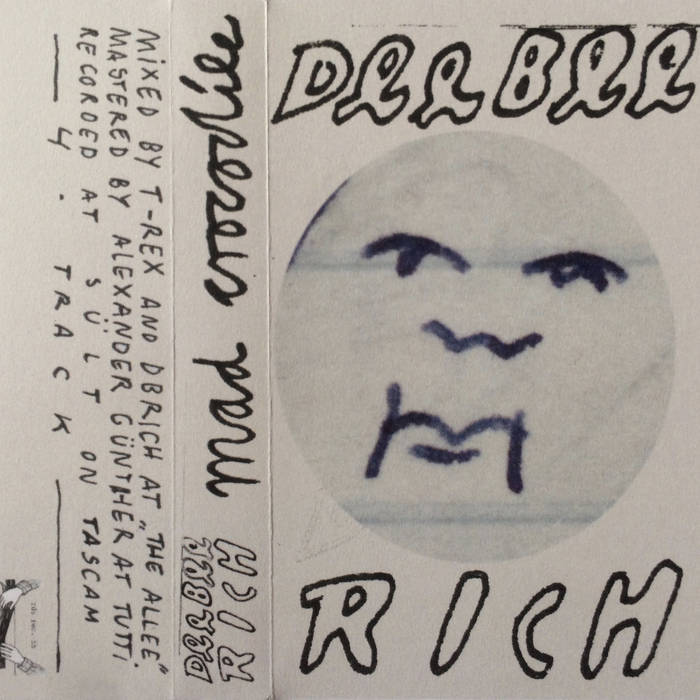 DEE BEE
RICH
mad
DEE BEE
RICH
MIXED BY T-REX AND DBRICH AT „THE ALLEE“
MASTERED BY ALEXANDER GÜNTHER AT TUTTI
RECORDED AT SÜLT ON TASCAM
— 4 . TRACK —